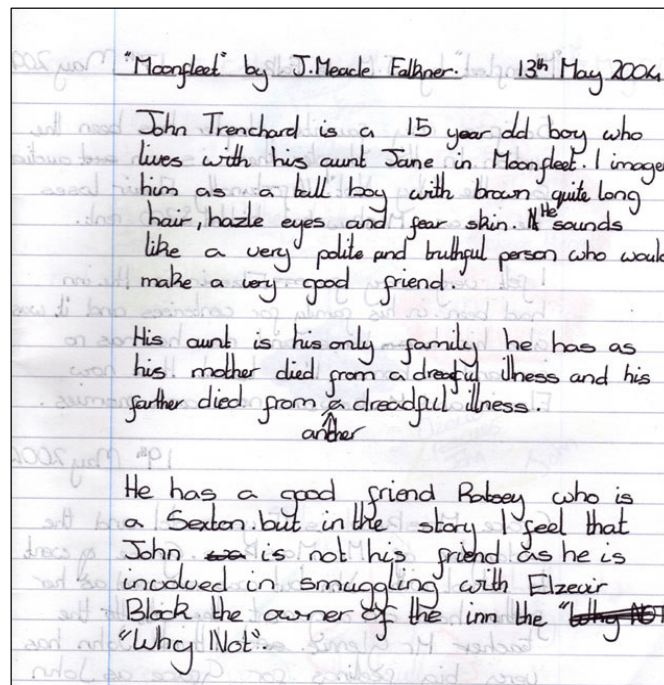 "Moonfleet" by J.Meade Falkner. 13th May 2004
John Trenchard is a 15 year old boy who
lives with his aunt Jane in Moonfleet. I imagen
him as a tall boy with brown quite long
hair, hazle eyes and fear skin. He sounds
like a very polite and truthful person who would
make a very good friend.
His aunt is his only family he has as
his mother died from a dreadful illness and his
farther died from a dreadful illness.
another
He has a good friend Ratsey who is
a Sexton. but in the story I feel that
John is not his friend as he is
involved in smuggling with Elzevir
Block the owner of the inn the "Why NOT
"Why Not".